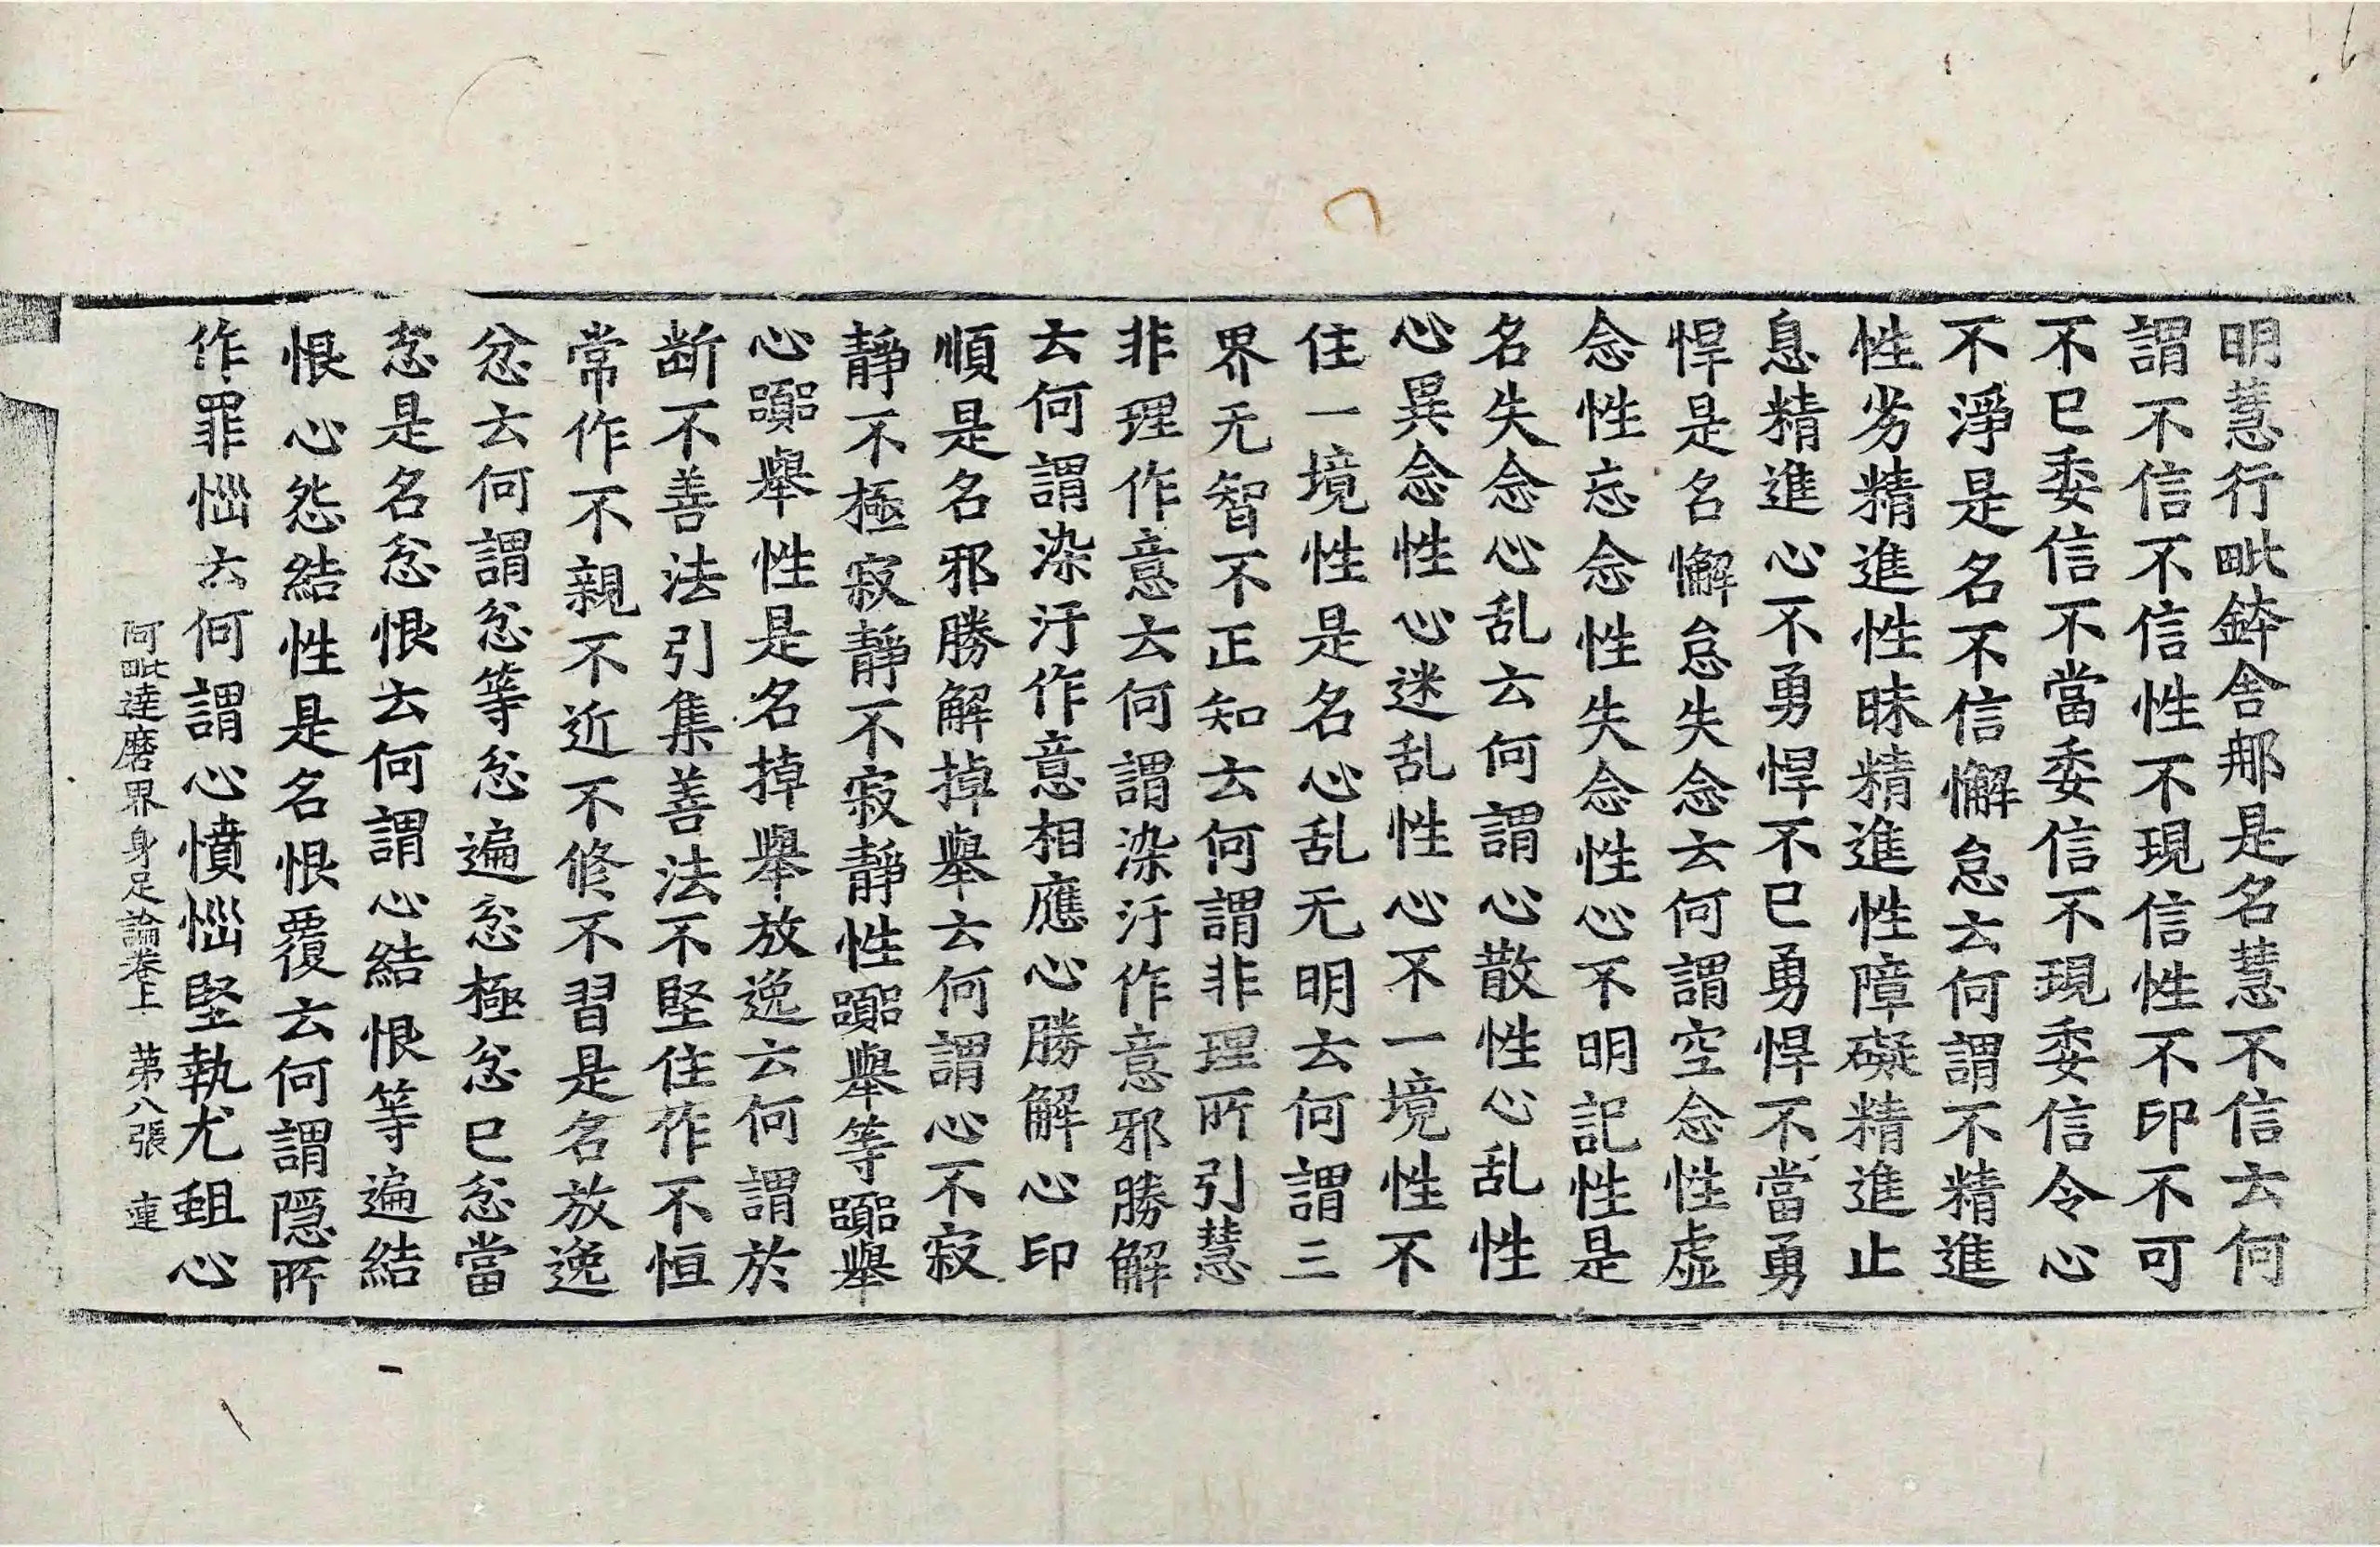 明慧行毗鉢舍那是名慧不信云何
謂不信不信性不現信性不印不可
不已委信不當委信不現委信令心
不淨是名不信懈怠云何謂不精進
性劣精進性昧精進性障礙精進止
息精進心不勇悍不已勇悍不當勇
悍是名懈怠失念云何謂空念性虛
念性忘念性失念性心不明記性是
名失念心乱云何謂心散性心乱性
心異念性心迷乱性心不一境性不
住一境性是名心乱无明云何謂三
界无智不正知云何謂非理所引慧
非理作意云何謂染汙作意邪勝解
云何謂染汙作意相應心勝解心印
順是名邪勝解掉舉云何謂心不寂
靜不極寂靜不寂靜性躁舉等躁舉
心躁舉性是名掉舉放逸云何謂於
断不善法引集善法不堅住作不恒
常作不親不近不修不習是名放逸
忿云何謂忿等忿遍忿極忿已忿當
忿是名忿恨云何謂心結恨等遍結
恨心怨結性是名恨覆云何謂隱所
作罪惱云何謂心憤惱堅執尤蛆心
阿毗達磨界身足論卷上 苐八張 連